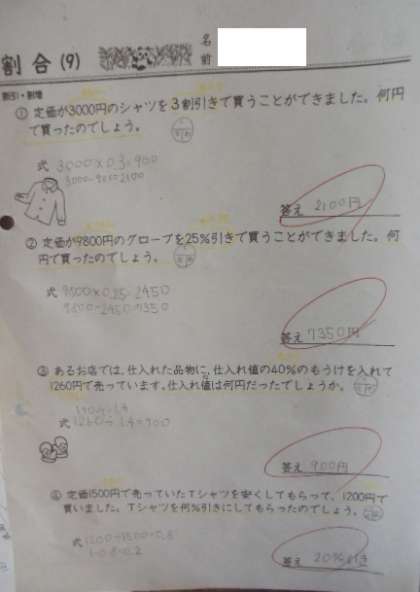 割合(9)
名前
割引・割増
① 定価が3000円のシャツを3割引きで買うことができました。何円
で買ったのでしょう。
式 3000×0.3=900
3000-900=2100
答え 2100円
② 定価が9800円のグローブを25%引きで買うことができました。何
円で買ったのでしょう。
式 9800×0.25=2450
9800-2450=7350
答え 7350円
③ あるお店では、仕入れた品物に、仕入れ値の40%のもうけを入れて
1260円で売っています。仕入れ値は何円だったでしょうか。
1+0.4=1.4
式 1260÷1.4=900
答え 900円
④ 定価1500円で売っていたTシャツを安くしてもらって、1200円で
買いました。Tシャツを何%引きにしてもらったのでしょう。
式 1200÷1500=0.8
1-0.8=0.2
答え 20%引き